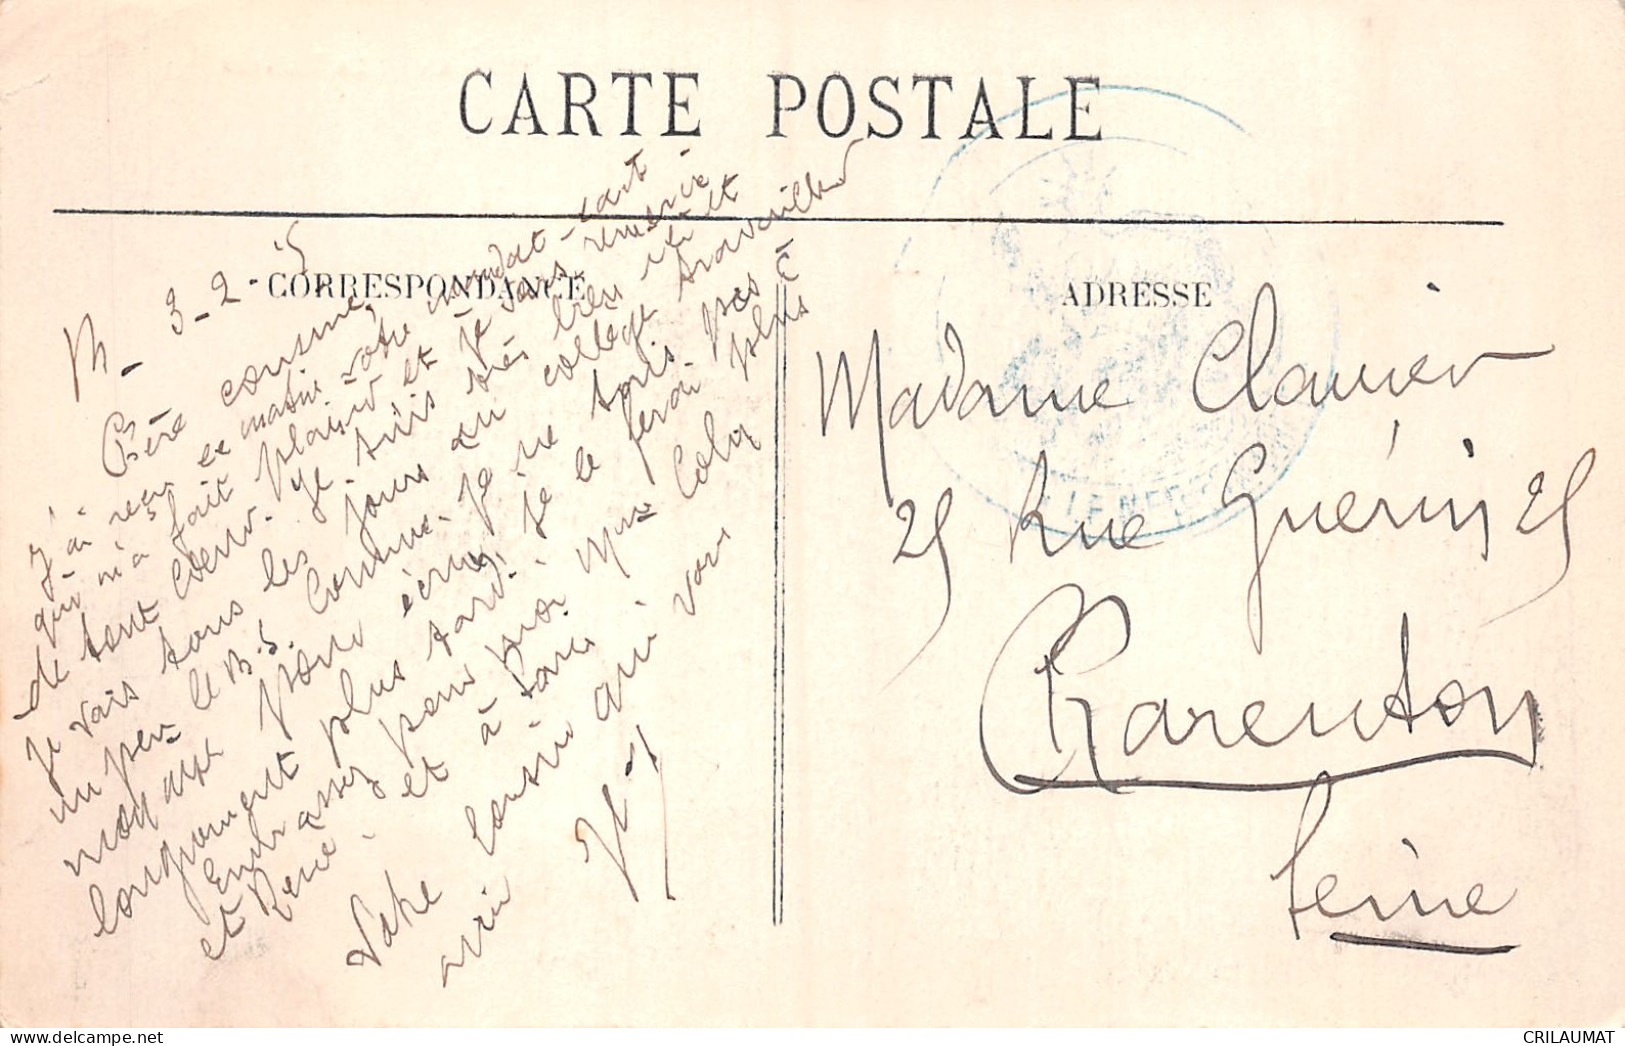 CARTE POSTALE
CORRESPONDANCE
ADRESSE
M - 3 - 2 - 15
Chère cousine,
J'ai reçu ce matin votre mandat-cart
qui m'a fait plaisir et je vous remercie
de tout coeur. Je suis très bien ici et
Je vais tous les jours au collège travailler
un peu le B.S. Comme je ne suis pas à
mon aise pour écrire, je le ferai plus
longuement plus tard.
Embrassez pour moi Mme Coly
et René et à tous
Votre cousin qui vous
aime
Madame Clavier
25 Rue Guérin 25
Charenton
Seine
CRILAUMAT